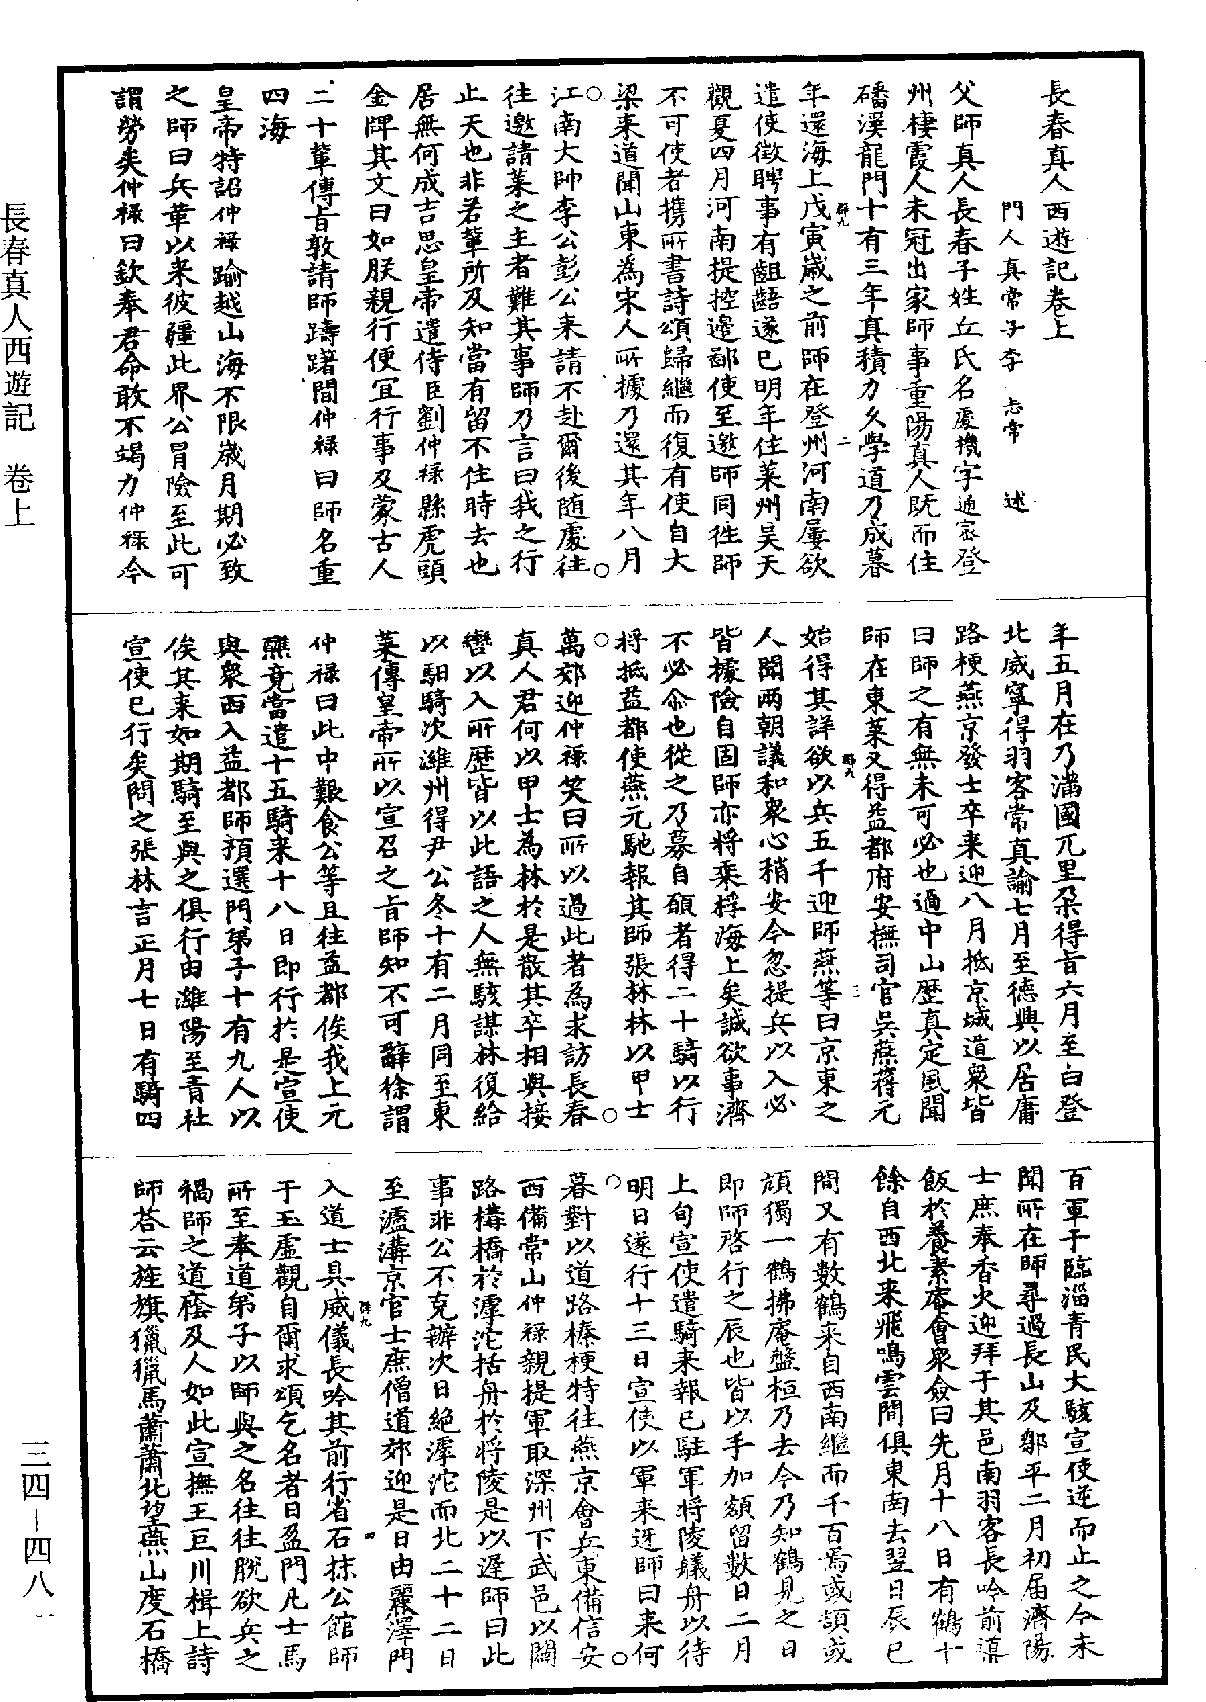 長春真人西遊記卷上
門人真常子李 志常 述
父師真人長春子姓丘氏名處機字通密登
州棲霞人未冠出家師事重陽真人既而住
磻溪龍門十有三年真積力久學道乃成暮
年還海上戊寅歲之前師在登州河南屢欲
遣使徵聘事有齟齬遂已明年住萊州昊天
觀夏四月河南提控邊鄙使至邀師同往師
不可使者攜所書詩頌歸繼而復有使自大
梁來道聞山東為宋人所據乃還其年八月
江南大帥李公彭公來請不赴爾後隨處往
往邀請萊之主者難其事師乃言曰我之行
止天也非若輩所及知當有留不住時去也
居無何成吉思皇帝遣侍臣劉仲祿縣虎頭
金牌其文曰如朕親行便宜行事及蒙古人
二十輩傳旨敦請師躊躇間仲祿曰師名重
四海
皇帝特詔仲祿踰越山海不限歲月期必致
之師曰兵革以來彼疆此界公冒險至此可
謂勞矣仲祿曰欽奉君命敢不竭力仲祿今
年五月在乃滿國兀里朵得旨六月至白登
北威寧得羽客常真諭七月至德興以居庸
路梗燕京發士卒來迎八月抵京城道眾皆
曰師之有無未可必也過中山歷真定風聞
師在東萊又得益都府安撫司官吳燕蔣元
始得其詳欲以兵五千迎師燕等曰京東之
人聞兩朝議和眾心稍安今忽提兵以入必
皆據險自固師亦將乘桴海上矣誠欲事濟
不必爾也從之乃募自願者得二十騎以行
將抵益都使燕元馳報其師張林林以甲士
萬郊迎仲祿笑曰所以過此者為求訪長春
真人君何以甲士為林於是散其卒相與按
轡以入所歷皆以此語之人無駭謀林復給
以馹騎次濰州得尹公冬十有二月同至東
萊傳皇帝所以宣召之旨師知不可辭徐謂
仲祿曰此中艱食公等且往益都俟我上元
醮竟當遣十五騎來十八日即行於是宣使
與眾西入益都師預選門弟子十有九人以
俟其來如期騎至與之俱行由濰陽至青社
宣使已行矣問之張林言正月七日有騎四
百軍于臨淄青民大駭宣使逆而止之今未
聞所在師尋過長山及鄒平二月初屆濟陽
士庶奉香火迎拜于其邑南羽客長吟前導
飯於養素庵會眾僉曰先月十八日有鶴十
餘自西北來飛鳴雲間俱東南去翌日辰巳
間又有數鶴來自西南繼而千百焉或頡或
頏獨一鶴拂庵盤桓乃去今乃知鶴見之日
即師啟行之辰也皆以手加額留數日二月
上旬宣使遣騎來報已駐軍將陵艤舟以待
明日遂行十三日宣使以軍來迓師曰來何
暮對以道路榛梗特往燕京會兵東備信安
西備常山仲祿親提軍取深州下武邑以闢
路構橋於滹沱括舟於將陵是以遲師曰此
事非公不克辦次日絕滹沱而北二十二日
至瀘溝京官士庶僧道郊迎是日由麗澤門
入道士具威儀長吟其前行省石抹公館師
于玉虛觀自爾求頌乞名者日盈門凡士馬
所至奉道弟子以師與之名往往脫欲兵之
禍師之道廕及人如此宣撫王巨川楫上詩
師荅云旌旗獵獵馬蕭蕭北望燕山度石橋
長春真人西遊記 卷上
三四-四八一